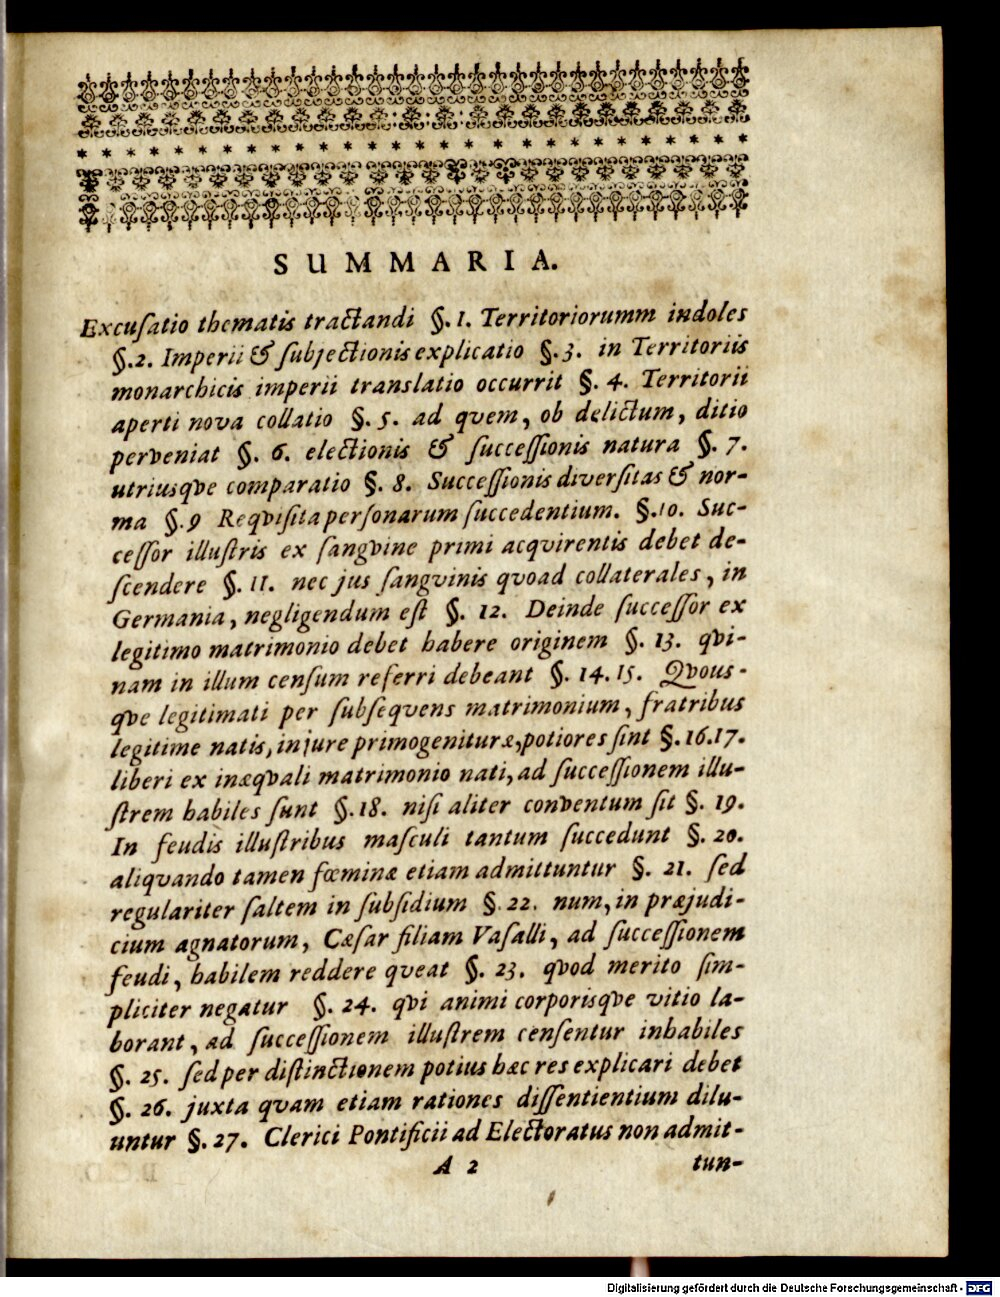 SUMMARIA.
Excuſatio thematis tractandi §. 1. Territoriorumm indoles
§. 2. Imperii & ſubjectionis explicatio §. 3. in Territoriis
monarchicis imperii translatio occurrit §. 4. Territorii
aperti nova collatio §. 5. ad qvem, ob delictum, ditio
perveniat §. 6. electionis & ſucceſſionis natura §. 7.
utriusqve comparatio §. 8. Succeſſionis diverſitas & nor-
ma §. 9 Reqviſita perſonarum ſuccedentium. §. 10. Suc-
ceſſor illuſtris ex ſangvine primi acqvirentis debet de-
ſcendere §. 11. nec jus ſangvinis qvoad collaterales, in
Germania, negligendum eſt §. 12. Deinde ſucceſſor ex
legitimo matrimonio debet habere originem §. 13. qvi-
nam in illum cenſum referri debeant §. 14. 15. Qvous-
qve legitimati per ſubſeqvens matrimonium, fratribus
legitime natis, in jure primogenituræ, potiores ſint §. 16. 17.
liberi ex inæqvali matrimonio nati, ad ſucceſſionem illu-
ſtrem habiles ſunt §. 18. niſi aliter conventum ſit §. 19.
In feudis illuſtribus maſculi tantum ſuccedunt §. 20.
aliqvando tamen fœminæ etiam admittuntur §. 21. ſed
regulariter ſaltem in ſubſidium §. 22. num, in præjudi-
cium agnatorum, Cæſar filiam Vaſalli, ad ſucceſſionem
feudi, habilem reddere qveat §. 23. qvod merito ſim-
pliciter negatur §. 24. qvi animi corporisqve vitio la-
borant, ad ſucceſſionem illuſtrem cenſentur inhabiles
§. 25. ſed per diſtinctionem potius hæc res explicari debet
§. 26. juxta qvam etiam rationes diſſentientium dilu-
untur §. 27. Clerici Pontificii ad Electoratus non admit-
A 2 tun-
Digitalisierung gefördert durch die Deutsche Forschungsgemeinschaft - DFG